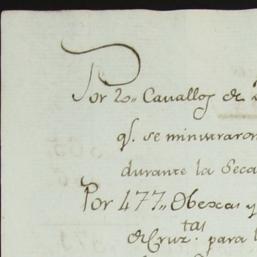 Por 20,, Cavallos de
q.̣ se ministraron
durante la Seca
Por 477,, Obexas y
de Cruz.tas para l